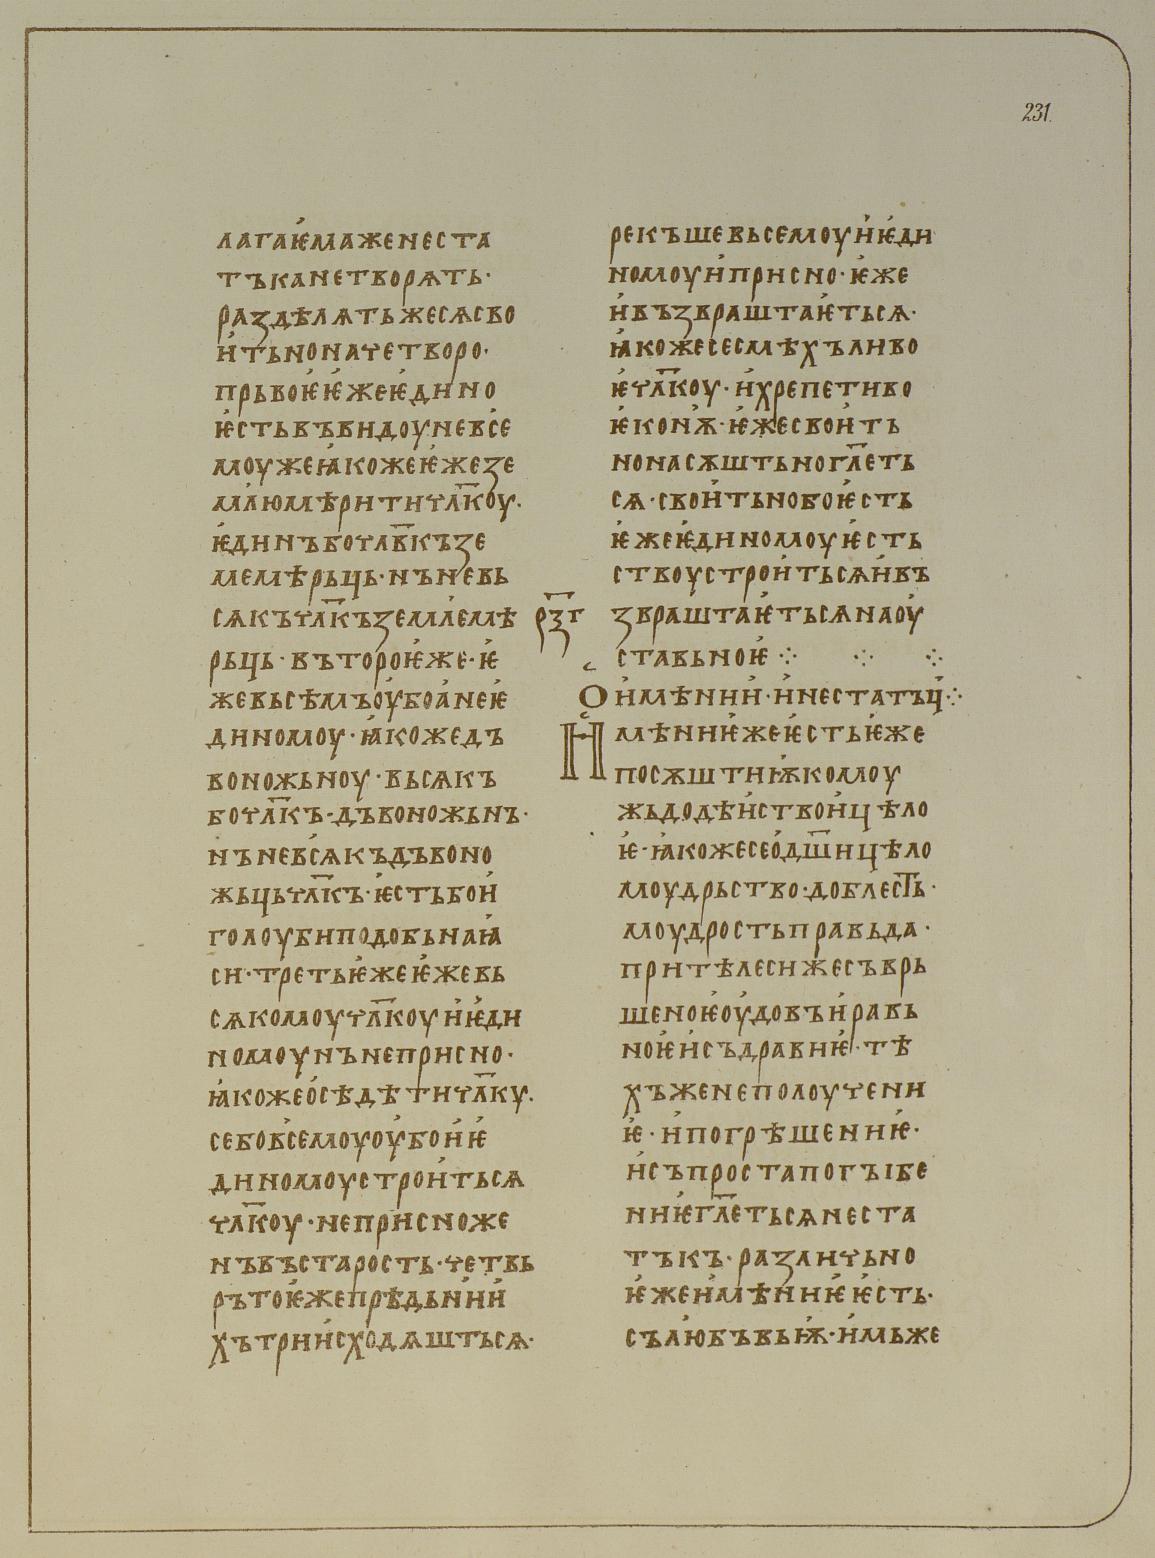 231.
лагаѥ́маженеста
тъканетворѧть·
раздѣлѧтьжесѧсво
и́тьноначетворо·
прьвоѥ́ѥ́жеѥ́дино
ѥ́стьвъвидоуневсе
моужеꙗ́кожеѥ́жезе
млюмѣритичл҃коу·
ѥ́динъбочлв҃къзе
мемѣрьць·нъневь
сѧкъчл҃къземлѥмѣ
рьць·вътороѥ́же·ѥ́
жевьсѣмъоу́боа́неѥ́
диномоу·ꙗ́кожедъ
воножьноу·вьсѧкъ
бочл҃къ·дъвоножьнъ·
нъневсѧкъдъвоно
жьцьчл҃къ·ѥ́стьбои́
голоубиподобьнаꙗ́
си·третьѥ́жеѥ́жевь
сѧкомоучл҃коуи́ѥ́ди
номоунънеприсно·
ꙗ́кожеосѣдѣтичл҃ку·
себовсемоуоу́бои́ѥ́
диномоустрои́тьсѧ
чл҃коу·неприсноже
нъвъстарость·четвь
рътоѥ́жепрѣдьнии́
хътрии́сходѧштьсѧ·
рекъшевьсемоуи́ѥ́ди
номоуи́присно·ѥ́же
и́възвраштаѥ́тьсѧ·
ꙗ́кожесесмѣхъливо
ѥ́чл҃коу·и́хрепетиво
ѥ́конѭ·ѥ́жесвои́ть
нонасѫштьногл҃еть
сѧ·свои́тьнобоѥ́сть
ѥ́жеѥ́диномоуѥ́сть
ствоустрои́тьсѧи́въ
рз҃г звраштаѥ́тьсѧнаоу́
ставьноѥ́ ⁘ ⁘ ⁘
Ои́мѣнии́·и́нестатъц́⁘
И́мѣниѥ́жеѥ́стьѥ́же
посѫштиѭ́комоу
жьдодѣи́ствои́цѣло
ѥ́·ꙗ́кожесеодш҃ицѣло
моудрьство·доблесть·
моудростьправьда·
притѣлесижесъврь
шеноѥ́оу́довъи́равь
ноѥ́и́съдравиѥ́·тѣ
хъженеполоучени
ѥ́·и́погрѣшениѥ́·
и́съпростапогыбе
ниѥ́гл҃етьсѧнеста
тъкъ·различьно
ѥ́жеи́мѣниѥ́ѥ́сть·
съл́юбъвьѭ́·и́мьже